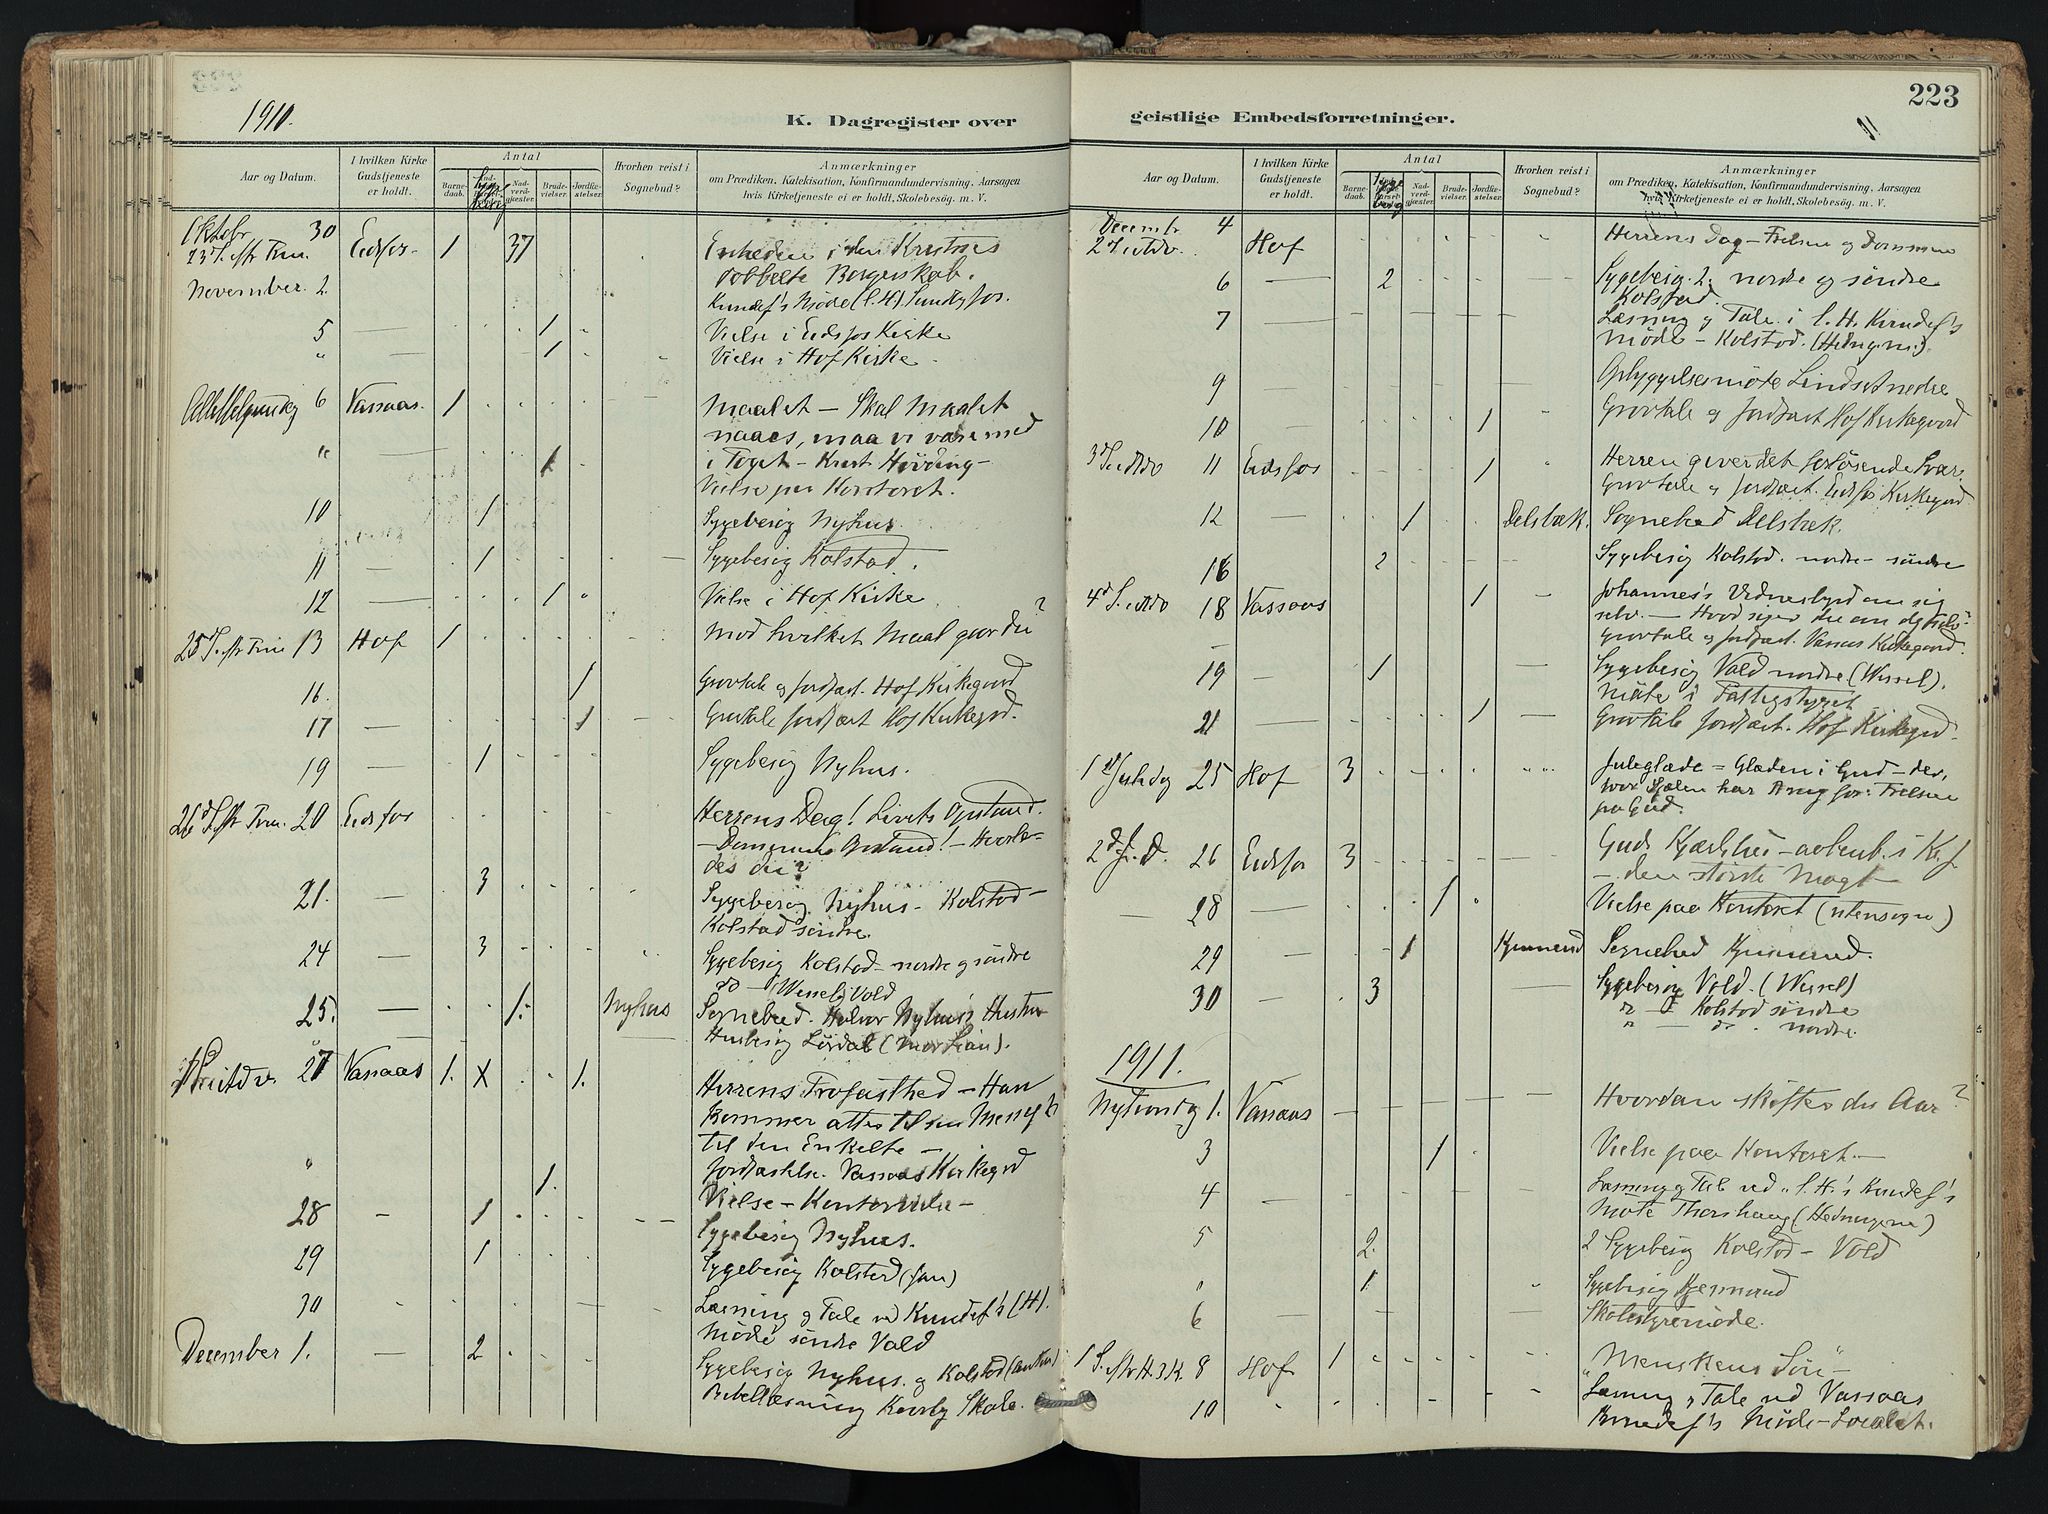 1910.
K. Dagregister over
Aar og Datum.
I hvilken Kirke
Gudstjeneste
er holdt.
Antal
Barne-
daab.
Nad-
verd-
gjæster.
Brude-
vielser.
Jordfæ-
stelser.
Hvorhen reist i
Sognebud?
Anmærkninger
om Prædiken, Katekisation, Konfirmandundervisning, Aarsagen
hvis Kirketjeneste ei er holdt, Skolebesøg. m. V.
Oktobr 30
23d S. eftr Trin. Eidsfos 1 37 Enheden i den Kristnes
dobbelte Borgerskab.
November 2. Kvindef's Møde (I.H) Sundbyfos.
5 — 1 Vielse i Eidsfos Kirke
" — 1 Vielse i Hof Kirke
Allehelgensdg 6 Vassaas. 1 Maalet — Skal Maalet
naaes, maa vi være med
i Toget — Krist Hövding —
" 1 Vielse paa Kontoret.
10 1 Sygebesög Nyhus.
11 — 1 Sygebesög Kolstad.
12 — 1 Vielse i Hof Kirke
25d S. eftr Trin 13 Hof 1 Mod hvilket Maal gaar du?
16. 1 Gravtale og Jordfæst. Hof Kirkegaard
17 — 1 Gravtale Jordfæst Hof Kirkegrd.
19 — 1 Sygebesög Nyhus.
26d S. eftr Trin. 20 Eidsfos Herrens Dag! Livets Opstand.
— Dommens Opstand! — Hvorle-
des du?
21. — 3 Sygebesög Nyhus — Kolstad —
Kolstad söndre.
24 — 3 Sygebesög Kolstad — nordre og söndre
do — (Wessel) Vold
25. — 1 Nyhus Sognebud. Halvor Nyhus's Hustru
Husbesög Lördal (Mor Lian).
1 S. i Adv. 27 Vassaas 1. X 1. Herrens Trofasthed — Han
kommer atter til sin Menigh
til den Enkelte —
Jordfæstelse. Vassaas Kirkegrd
" 1. Vielse — Kontoret —
28 - 1 Sygebesög Nyhus.
29 1 Sygebesög Kolstad (Jan)
30 Læsning og Tale ved Kvindef's (H).
Møde söndre Vold
December 1. 2 Sygebesög Nyhus. og Kolstad
Bibellæsning Skole.
geistlige Embedsforretninger.
223
11
Aar og Datum.
I hvilken Kirke
Gudstjeneste
er holdt.
Antal
Barne-
daab.
Nad-
verd-
gjæster.
Brude-
vielser.
Jordfæ-
stelser.
Hvorhen reist i
Sognebud?
Anmærkninger
om Prædiken, Katekisation, Konfirmandundervisning, Aarsagen
hvis Kirketjeneste ei er holdt, Skolebesøg. m. V.
Decembr 4
2 S. i Adv. Hof Herrens Dag — Frelsen og Dommen
6 — 2 Sygebesög. 2. nordre og söndre
Kolstad.
7 — Læsning og Tale i I. H. Kvindef's
Møde — Kolstad. (Hedningem.).
9 — Opbyggelsesmöte Lindset nedre
10 - 1 Gravtale og Jordfæst Hof Kirkegaard
3d S. i Adv 11 Eidsfos 1 Herren giver det forlösende Svar.
Gravtale og Jordfæst. Eidsfos Kirkegrd
12 — 1 Delsbæk. Sognebud Delsbæk.
16 2 Sygebesög Kolstad. nordre — söndre
4d S. i Adv 18 Vassaas 1 Johannes's Vidnesbyrd om sig
selv. — Hvad siger du om dig selv
Gravtale og Jordfæst. Vassaas Kirkegaard.
19 - 1 Sygebesög Vold nordre (Wessel).
Möte i Fattigstyret
21 — 1 Gravtale Jordfæst. Hof Kirkegrd.
1d Juledag 25 Hof 3 Juleglæde = Glæden i Gud — der,
hvor Sjælen har Brug for: Frelsen
paa Gud.
2d J. D. 26 Eidsfos 3 Guds Kjærlihed — aabenb. i Kr
— den störste Magt
28 — 1 Vielse paa Kontoret (utensogns)
29 — 1 Kjennerud Sognebud Kjennerud.
30 - 3 Sygebesög Vold. (Wessel)
" — " Kolstad söndre
" — " nordre.
1911.
Nytaarsdg 1. Vassaas Hvordan skiftes du Aar?
3 1 Vielse paa Kontoret. —
4 Læsning og Tale ved „I. H.'s Kvindef's
Möte Thorshaug (Hedningem)
5 2. 2 Sygebesög Kolstad — Vold
" 1 Sygebesög Kjennerud
6 — Skolestyremöde.
1 S. eftr H.3.K. 8 Hof 1 "Menskens Sön" —
10 Læsning og Tale ved Vassaas
Kvindef's Möde — Localet.